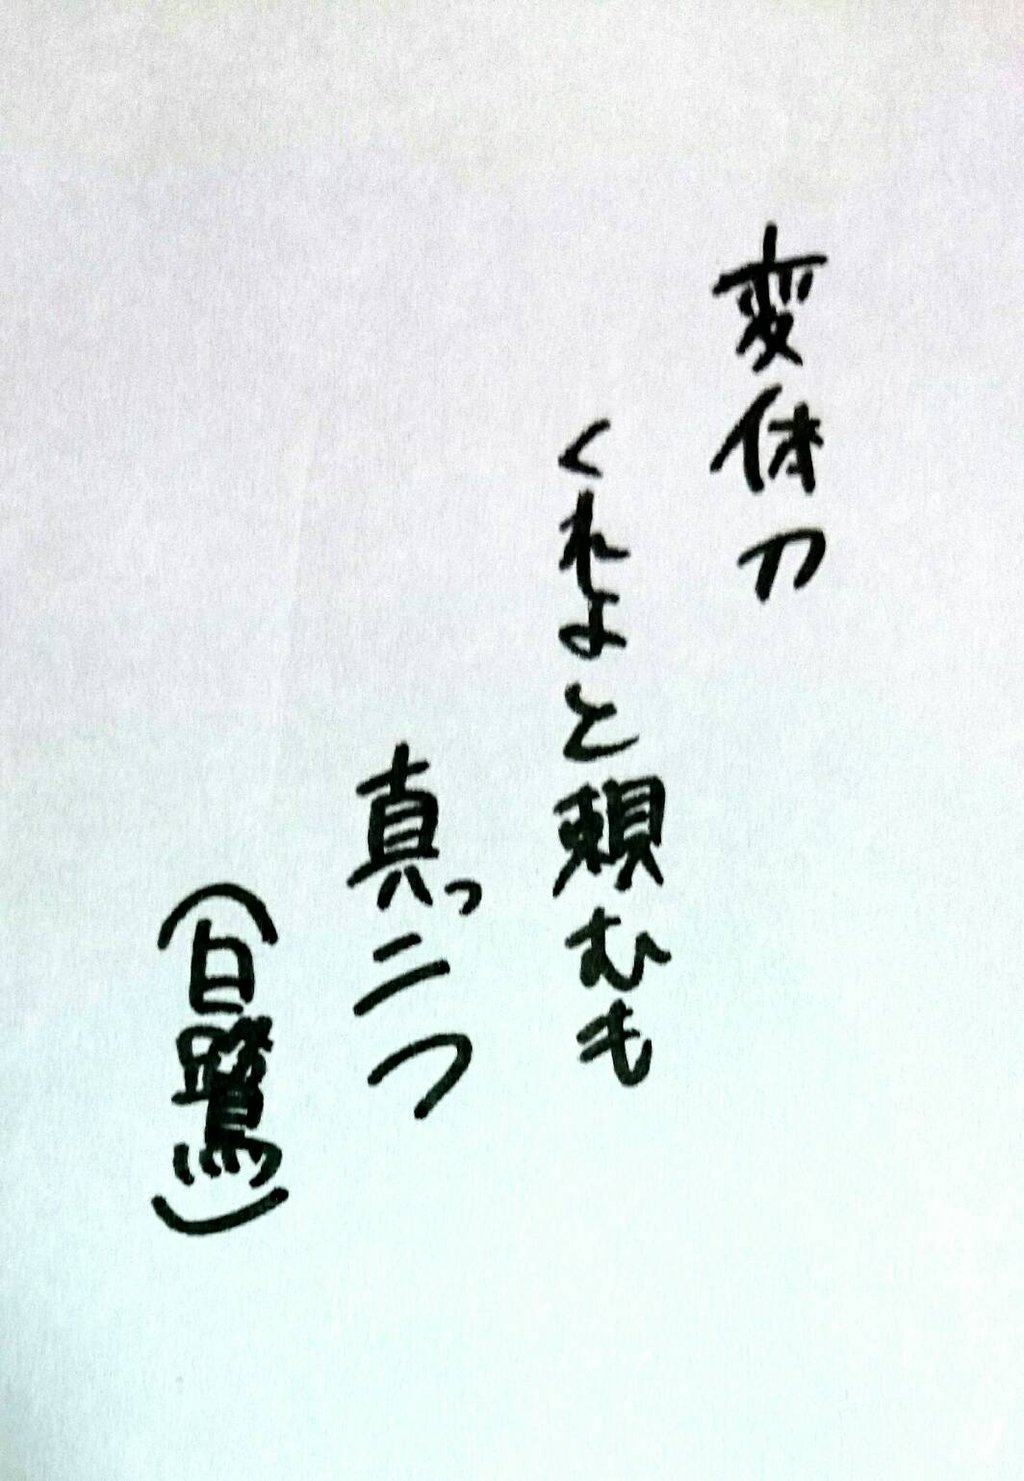 変体刀
くれよと頼むも
真っ二つ
(白鷺)